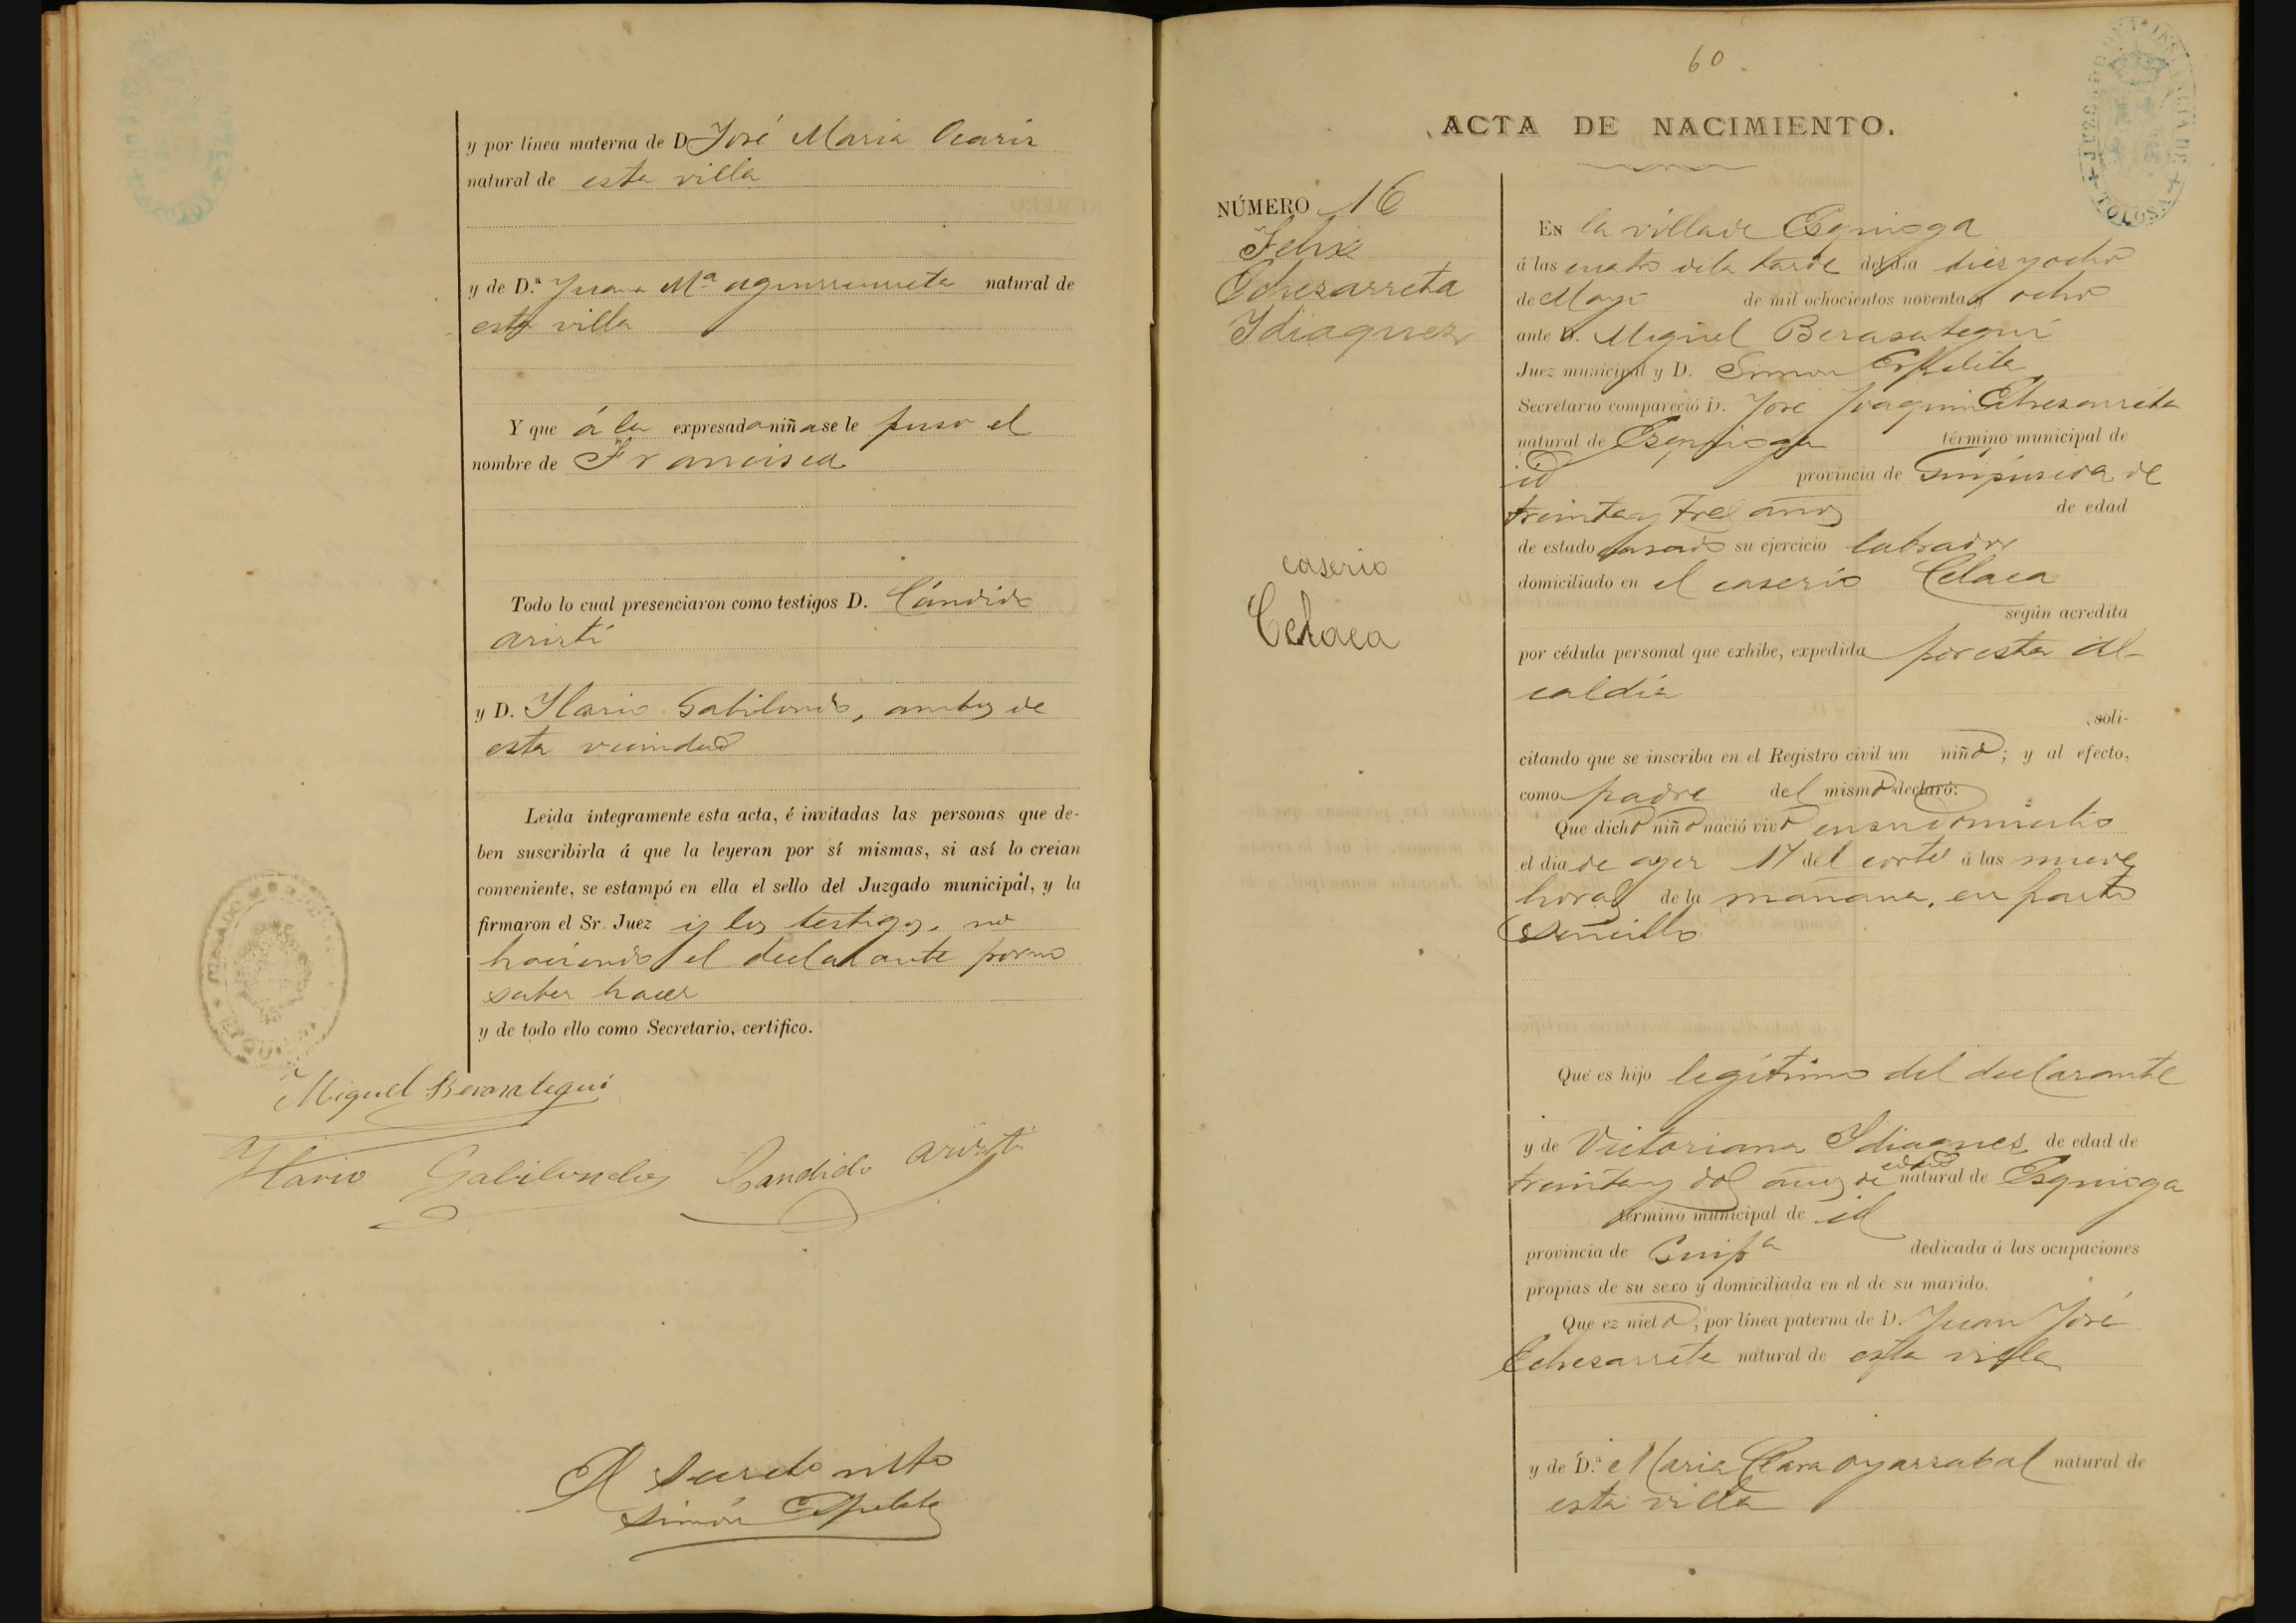 y por línea materna de D José Maria Ocariz
natural de esta villa
y de D.ª Juana Mª aguirreurreta natural de
esta villa
Y que á la expresada niña se le puso el
nombre de Francisca
Todo lo cual presenciaron como testigos D. Cándido
aristi
y D. Ilario Gabilondo, ambos de
esta vecindad
Leida íntegramente esta acta, é invitadas las personas que de-
ben suscribirla á que la leyeran por sí mismas, si así lo creian
conveniente, se estampó en ella el sello del Juzgado municipal, y la
firmaron el Sr. Juez y los testigos, no
haciendo el declarante por no
saber hacer
y de todo ello como Secretario, certifico.
Miguel Berasategui
Ilario Gabilondo Candido aristi
El Secreto
Simón Ezpeleta
60.
ACTA DE NACIMIENTO.
JUZGADO DE 1ª INSTANCIA DE TOLOSA
NÚMERO 16
Felix
Echezarreta
Idiaquez
caserio
Celaea
En la villa de Ezquioga
á las cuatro de la tarde del dia diez y ocho
de Mayo de mil ochocientos noventa y ocho
ante D. Miguel Berasategui
Juez municipal y D. Simon Ezpeleta
Secretario compareció D. José Joaquin Echezarreta
natural de Ezquioga término municipal de
id provincia de Guipúzcoa de
treinta y tres años de edad
de estado casado su ejercicio labrador
domiciliado en el caserio Celaea
según acredita
por cédula personal que exhibe, expedida por esta al-
caldía
, soli-
citando que se inscriba en el Registro civil un niño; y al efecto,
como padre del mismo declaró:
Que dicho niño nació vivo en su domicilio
el dia de ayer 17 del corte á las nueve
horas de la mañana, en parto
sencillo
Que es hijo legítimo del declarante
y de Victoriana Idiaques de edad de
treinta y dos años de edad natural de Ezquioga
término municipal de id
provincia de Guipª dedicada á las ocupaciones
propias de su sexo y domiciliada en el de su marido.
Que ez nieto, por línea paterna de D. Juan José
Echezarreta natural de esta villa
y de D.ª Maria Clara oyarzabal natural de
esta villa